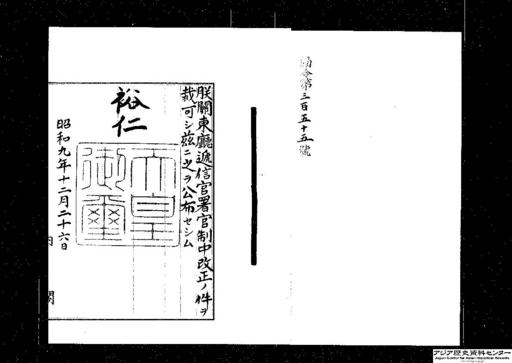 勅令第三百五十五號
朕關東廳遞信官署官制中改正ノ件ヲ
裁可シ茲ニ之ヲ公布セシム
裕仁
天皇
御璽
昭和九年十二月二十六日
内閣
アジア歴史資料センター
Japan Center for Asian Historical Records